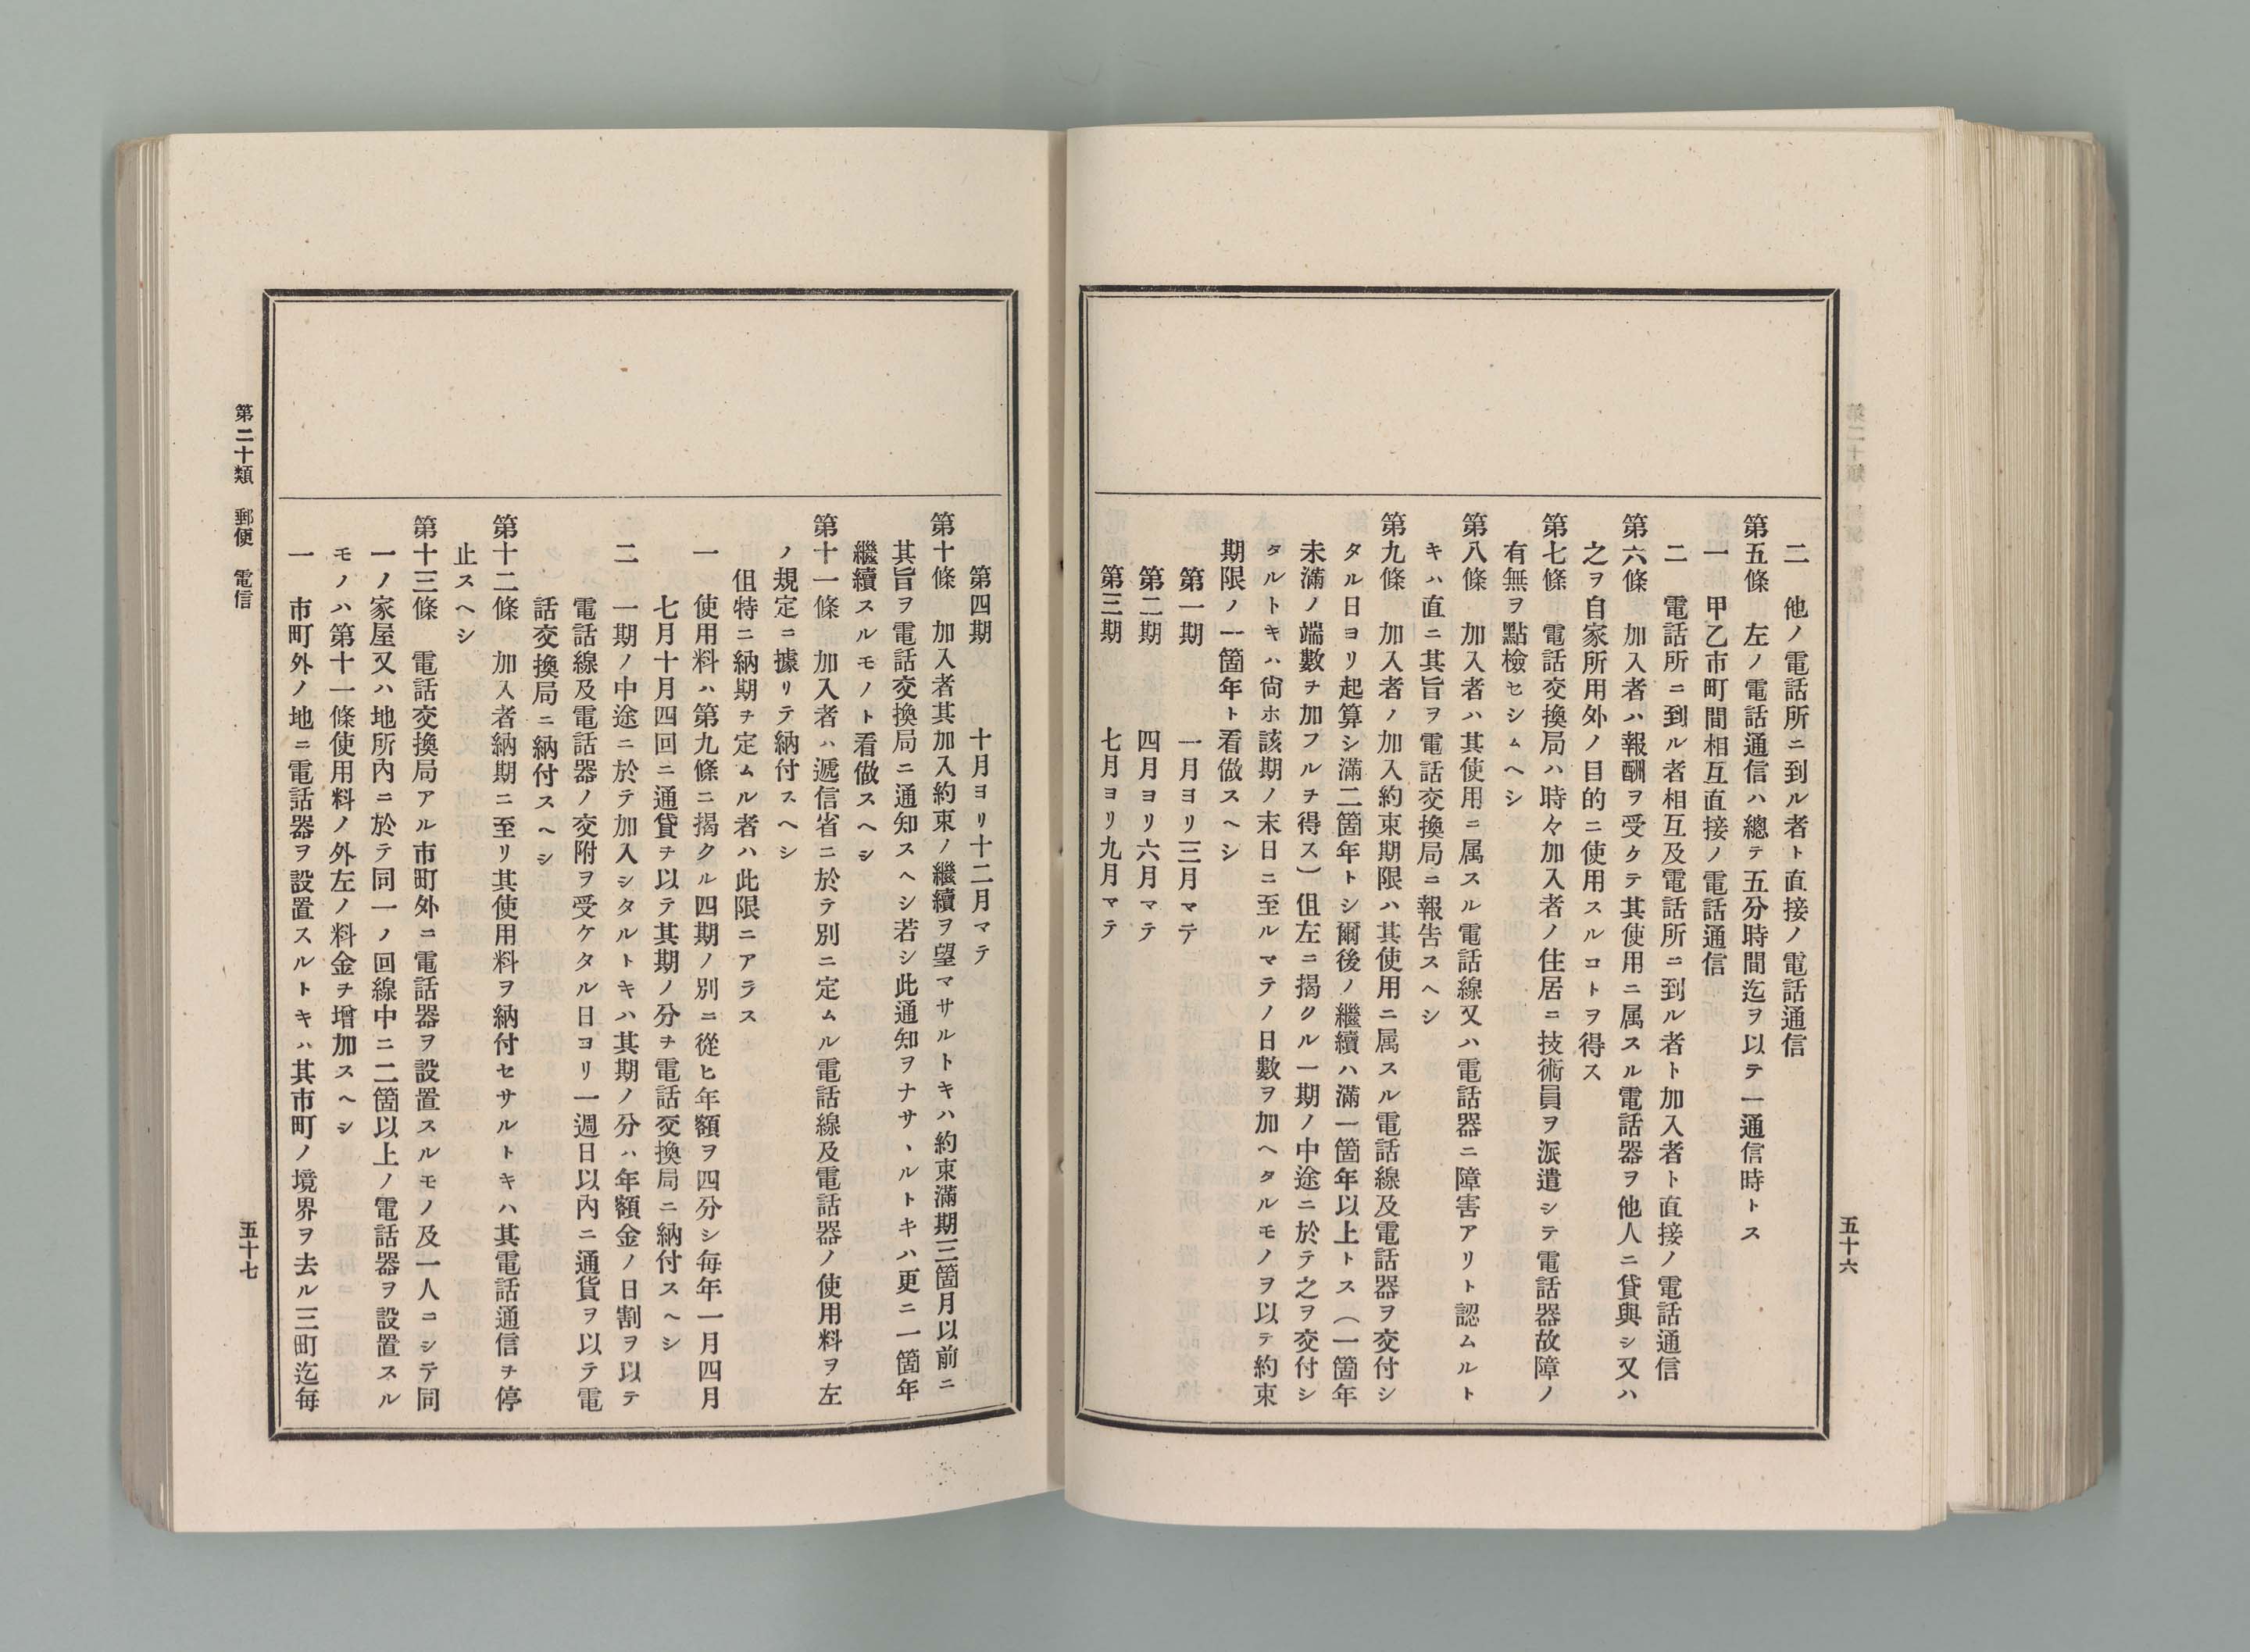 二　他ノ電話所ニ到ル者ト直接ノ電話通信
第五條　左ノ電話通信ハ總テ五分時間迄ヲ以テ一通信時トス
一　甲乙市町間相互直接ノ電話通信
二　電話所ニ到ル者相互及電話所ニ到ル者ト加入者ト直接ノ電話通信
第六條　加入者ハ報酬ヲ受ケテ其使用ニ属スル電話器ヲ他人ニ貸與シ又ハ
之ヲ自家所用外ノ目的ニ使用スルコトヲ得ス
第七條　電話交換局ハ時々加入者ノ住居ニ技術員ヲ派遣シテ電話器故障ノ
有無ヲ點檢セシムヘシ
第八條　加入者ハ其使用ニ属スル電話線又ハ電話器ニ障害アリト認ムルト
キハ直ニ其旨ヲ電話交換局ニ報告スヘシ
第九條　加入者ノ加入約束期限ハ其使用ニ属スル電話線及電話器ヲ交付シ
タル日ヨリ起算シ滿二箇年トシ爾後ノ繼續ハ滿一箇年以上トス（一箇年
未滿ノ端數チ加フルヲ得ス）但左ニ揭クル一期ノ中途ニ於テ之ヲ交付シ
タルトキハ尙ホ該期ノ末日ニ至ルマテノ日數ヲ加ヘタルモノヲ以テ約束
期限ノ一箇年ト看做スヘシ
第一期　一月ヨリ三月マテ
第二期　四月ヨリ六月マテ
第三期　七月ヨリ九月マテ
五十六
第四期　十月ヨリ十二月マテ
第十條　加入者其加入約束ノ繼續ヲ望マサルトキハ約束滿期三箇月以前ニ
其旨ヲ電話交換局ニ通知スヘシ若シ此通知ヲナサヽルトキハ更ニ一箇年
繼續スルモノト看做スヘシ
第十一條　加入者ハ遞信省ニ於テ別ニ定ムル電話線及電話器ノ使用料ヲ左
ノ規定ニ據リテ納付スヘシ
但特ニ納期チ定ムル者ハ此限ニアラス
一　使用料ハ第九條ニ揭クル四期ノ別ニ從ヒ年額ヲ四分シ每年一月四月
七月十月四回ニ通貨チ以テ其期ノ分チ電話交換局ニ納付スヘシ
二　一期ノ中途ニ於テ加入シタルトキハ其期ノ分ハ年額金ノ日割ヲ以テ
電話線及電話器ノ交附ヲ受ケタル日ヨリ一週日以內ニ通貨ヲ以テ電
話交換局ニ納付スヘシ
第十二條　加入者納期ニ至リ其使用料ヲ納付セサルトキハ其電話通信チ停
止スヘシ
第十三條　電話交換局アル市町外ニ電話器ヲ設置スルモノ及一人ニシテ同
一ノ家屋又ハ地所內ニ於テ同一ノ回線中ニ二箇以上ノ電話器ヲ設置スル
モノハ第十一條使用料ノ外左ノ料金チ增加スヘシ
一　市町外ノ地ニ電話器ヲ設置スルトキハ其市町ノ境界ヲ去ル三町迄每
第二十類　郵便　電信
五十七